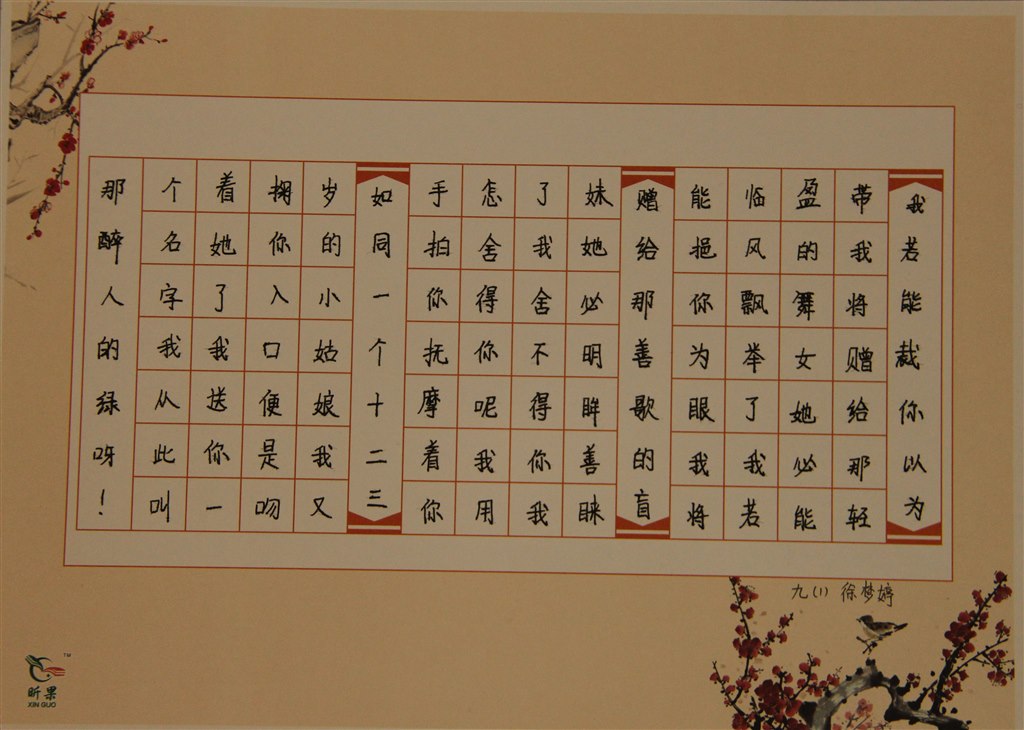 我若能裁你以为
带我将赠给那轻
盈的舞女她必能
临风飘举了我若
能挹你为眼我将
赠给那善歌的盲
妹她必明眸善睐
了我舍不得你我
怎舍得你呢我用
手拍你抚摩着你
如同一个十二三
岁的小姑娘我又
掬你入口便是吻
着她了我送你一
个名字我从此叫
那醉人的绿呀！
九(1) 徐梦婷
TM
昕果
XIN GUO